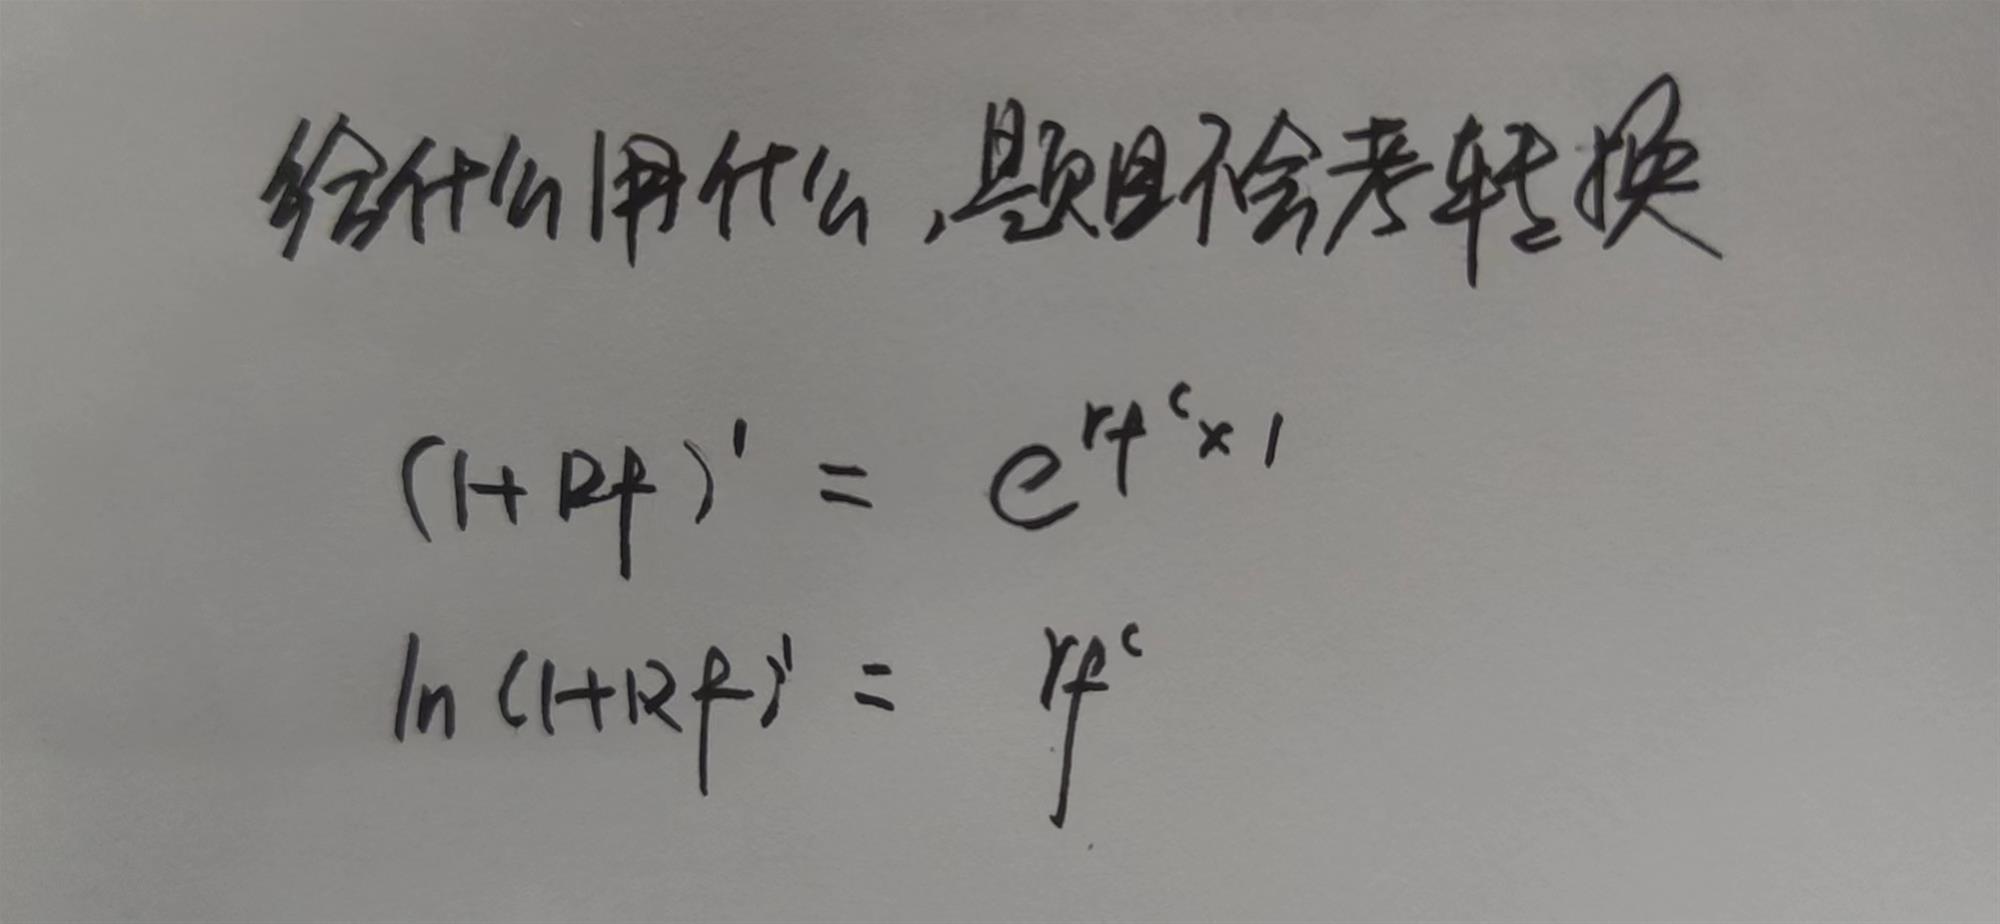 给什么用什么,题目不会考转换
(1+Rf)¹ = e^{rf^c×1}
ln(1+Rf)¹ = rf^c